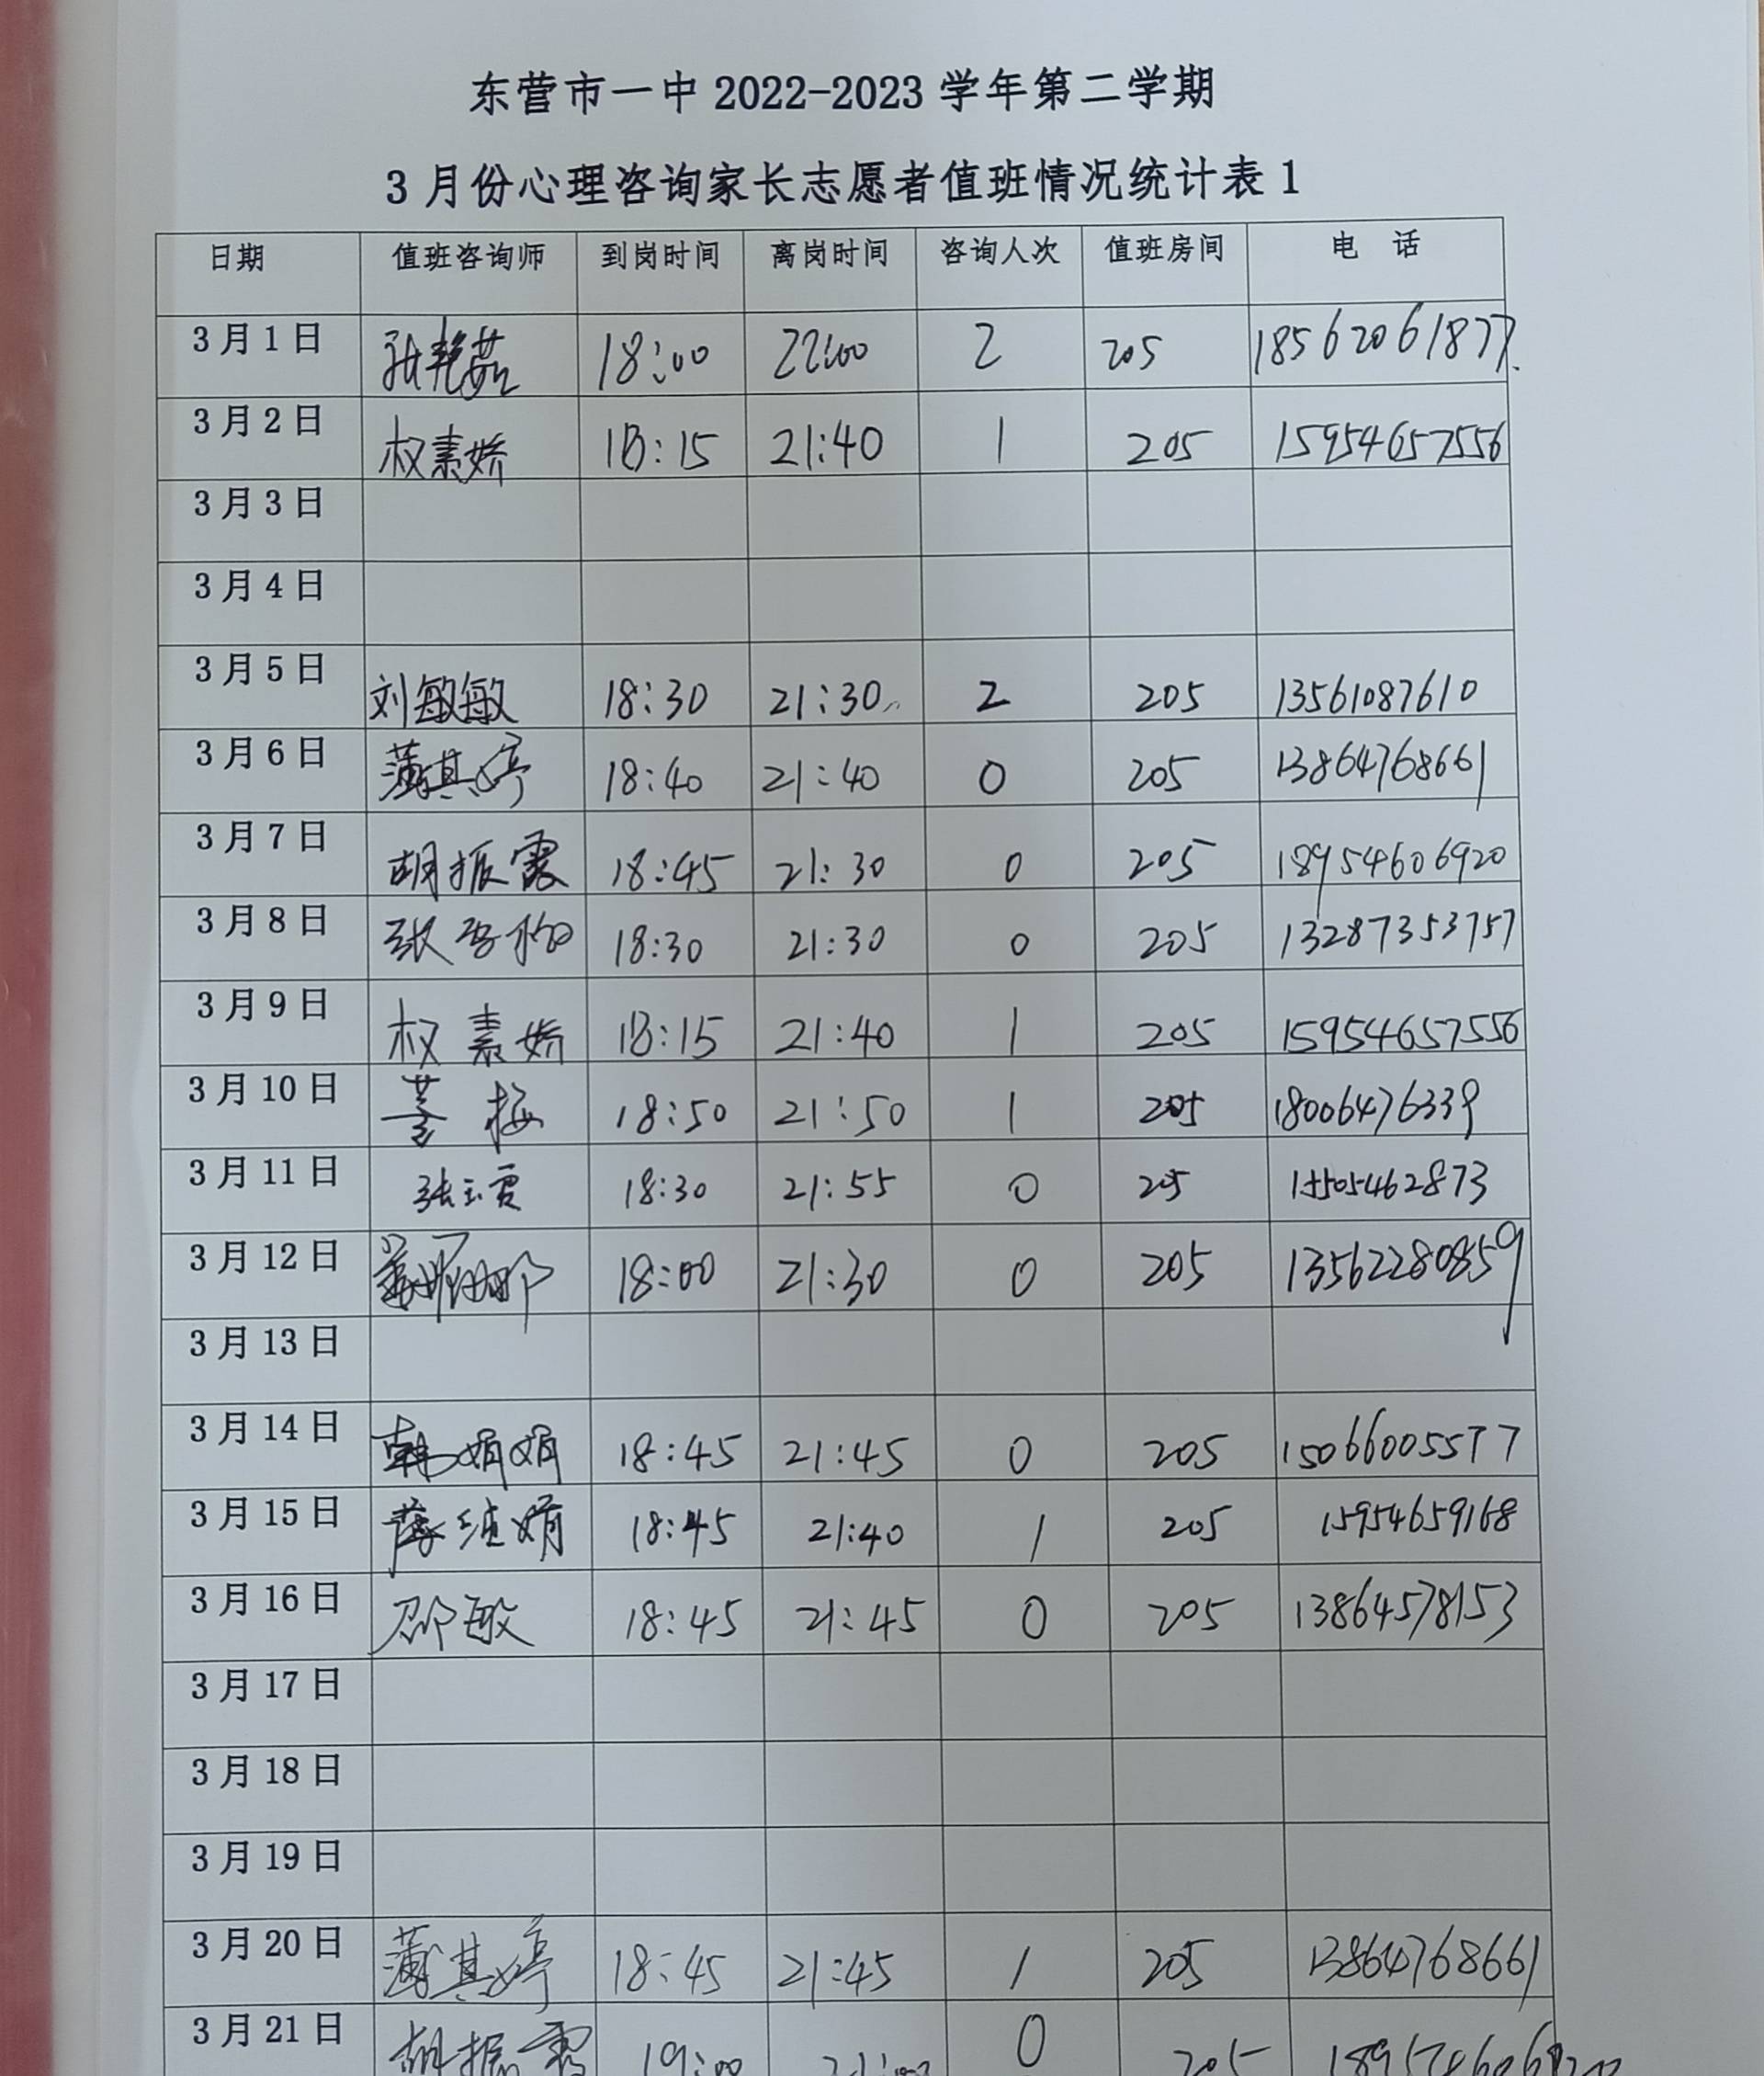 东营市一中 2022-2023 学年第二学期
3 月份心理咨询家长志愿者值班情况统计表 1
日期 值班咨询师 到岗时间 离岗时间 咨询人次 值班房间 电 话
3 月 1 日 18:00 22:00 2 205 18562061877.
3 月 2 日 权素娇 18:15 21:40 1 205 15954657556
3 月 3 日
3 月 4 日
3 月 5 日 刘敏敏 18:30 21:30 2 205 13561087610
3 月 6 日 蒲其婷 18:40 21:40 0 205 13864768661
3 月 7 日 胡振霞 18:45 21:30 0 205 18954606920
3 月 8 日 18:30 21:30 0 205 13287353757
3 月 9 日 权素娇 18:15 21:40 1 205 15954657556
3 月 10 日 董梅 18:50 21:50 1 205 18006476339
3 月 11 日 张玉霞 18:30 21:55 0 205 15505462873
3 月 12 日 18:00 21:30 0 205 13562280859
3 月 13 日
3 月 14 日 韩娟娟 18:45 21:45 0 205 15066005577
3 月 15 日 18:45 21:40 1 205 15954659168
3 月 16 日 邵敏 18:45 21:45 0 205 13864578153
3 月 17 日
3 月 18 日
3 月 19 日
3 月 20 日 蒲其婷 18:45 21:45 1 205 13864768661
3 月 21 日 胡振霞 19:00 0 205